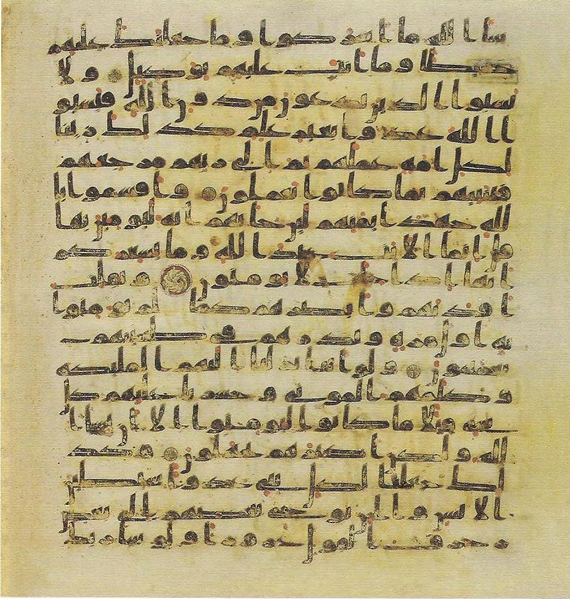 شا الله ما اشركوا وما جعلنك عليهم
حفيظا وما انت عليهم بوكيل ولا
تسبوا الذين يدعون من دون الله فيسبو
ا الله عدوا بغير علم كذلك زينا
لكل امة عملهم ثم الى ربهم مرجعهم
فينبئهم بما كانوا يعملون واقسموا با
لله جهد ايمنهم لئن جاتهم اية ليومنن بها
قل انما الايت عند الله وما يشعركم
انها اذا جات لا يومنون ونقلب
افدتهم وابصرهم كما لم يومنوا
به اول مرة ونذرهم في طغينهم
يعمهون ولو اننا نزلنا اليهم الملئكة
وكلمهم الموتى وحشرنا عليهم كل
شي قبلا ما كانوا ليومنوا الا ان يشا
الله ولكن اكثرهم يجهلون وكذ
لك جعلنا لكل نبي عدوا شيطين
الانس والجن يوحي بعضهم الى بعض
زخرف القول غرورا ولو شا ربك